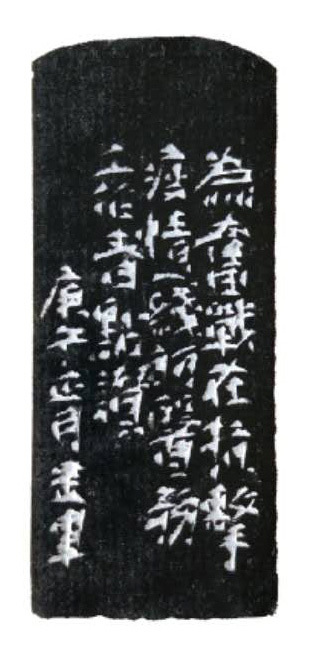 為奮戰在抗擊
疫情一線的醫務
工作者點讚
庚子正月軍